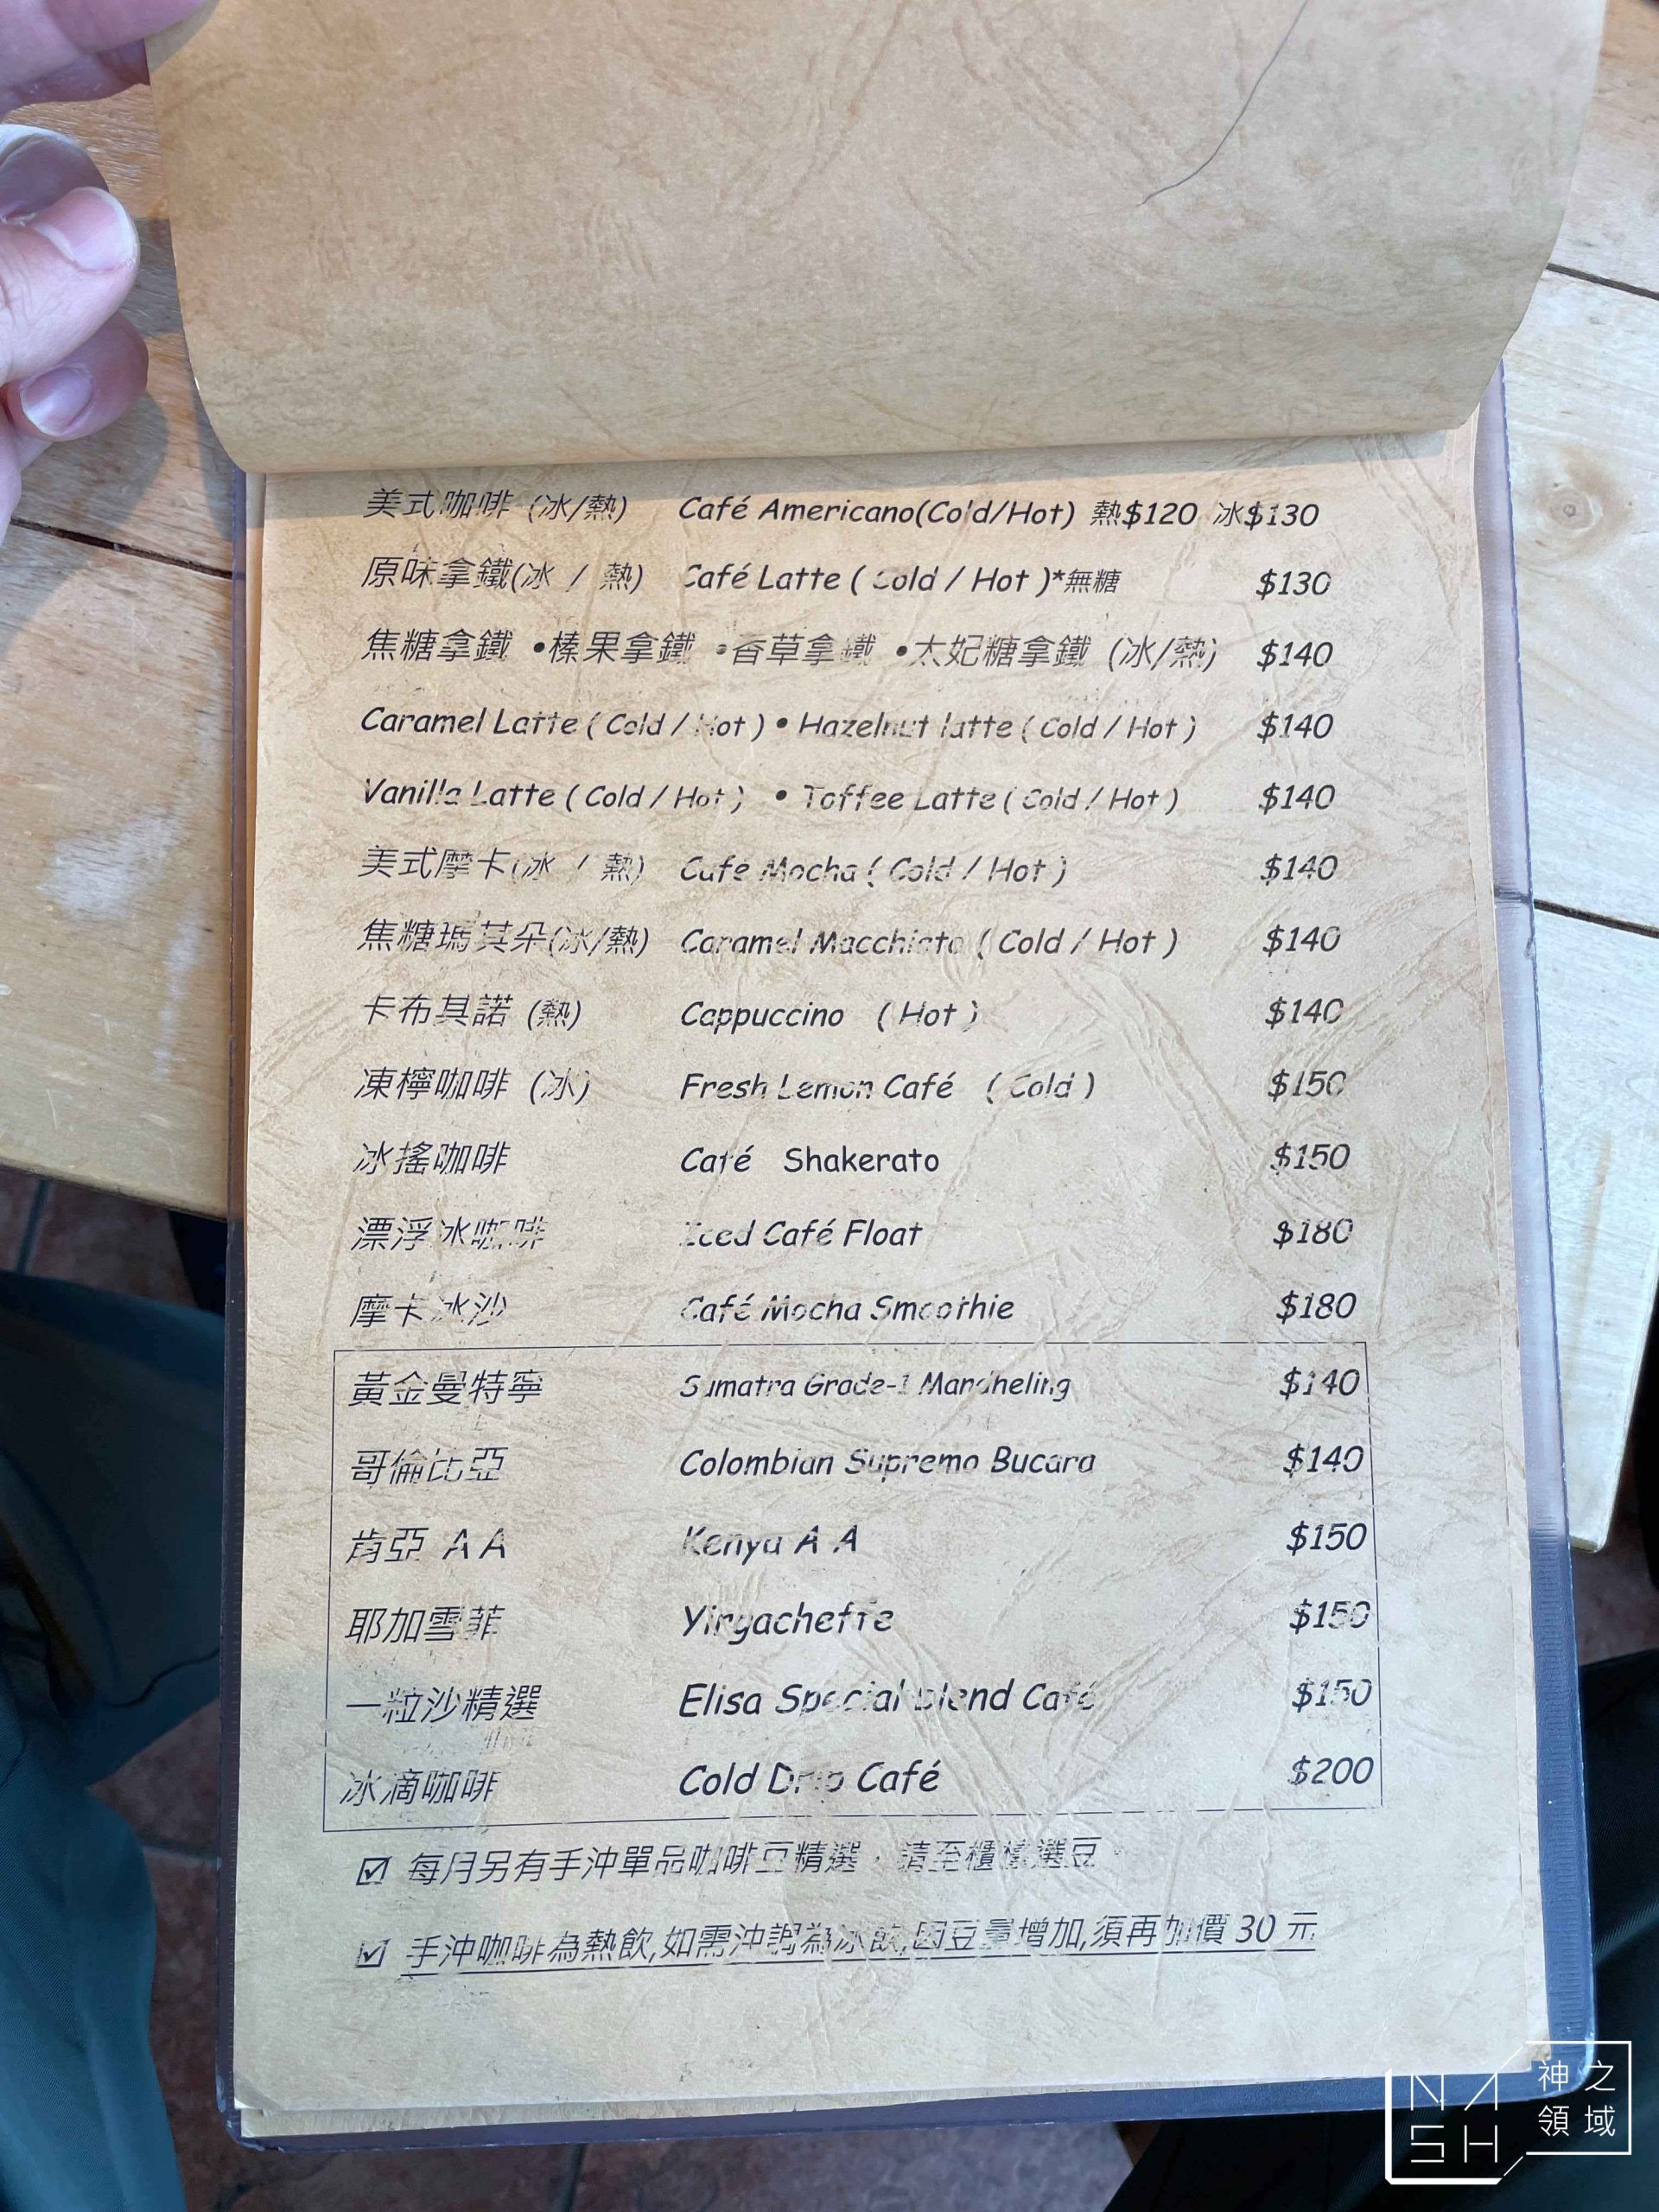 美式咖啡 (冰/熱) Café Americano(Cold/Hot) 熱$120 冰$130
原味拿鐵(冰 / 熱) Café Latte ( Cold / Hot )*無糖 $130
焦糖拿鐵 •榛果拿鐵 •香草拿鐵 •太妃糖拿鐵 (冰/熱) $140
Caramel Latte ( Cold / Hot ) • Hazelnut latte ( Cold / Hot ) $140
Vanilla Latte ( Cold / Hot ) • Toffee Latte ( Cold / Hot ) $140
美式摩卡(冰 / 熱) Café Mocha ( Cold / Hot ) $140
焦糖瑪其朵(冰/熱) Caramel Macchiato ( Cold / Hot ) $140
卡布其諾 (熱) Cappuccino ( Hot ) $140
凍檸咖啡 (冰) Fresh Lemon Café ( Cold ) $150
冰搖咖啡 Café Shakerato $150
漂浮冰咖啡 Iced Café Float $180
摩卡冰沙 Café Mocha Smoothie $180
黃金曼特寧 Sumatra Grade-1 Mandheling $140
哥倫比亞 Colombian Supremo Bucara $140
肯亞 A A Kenya A A $150
耶加雪菲 Yirgacheffe $150
一粒沙精選 Elisa Special blend Café $150
冰滴咖啡 Cold Drip Café $200
☑ 每月另有手沖單品咖啡豆精選，請至櫃檯選豆。
☑ 手沖咖啡為熱飲,如需沖調為冰飲,因豆量增加,須再加價 30 元
NASH 神之領域